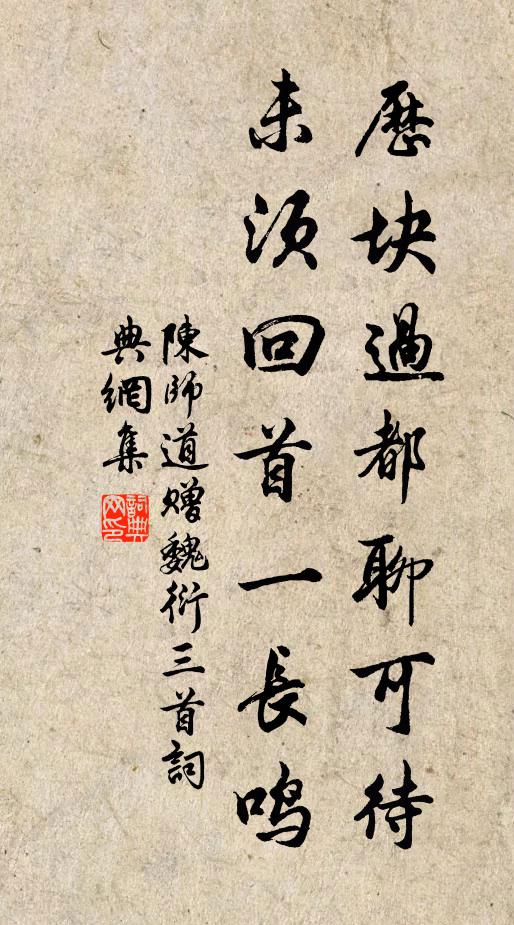 歷块過都聊可待
未須回首一長鸣
陳師道赠魏衍三首詞
典網集
詞典网印